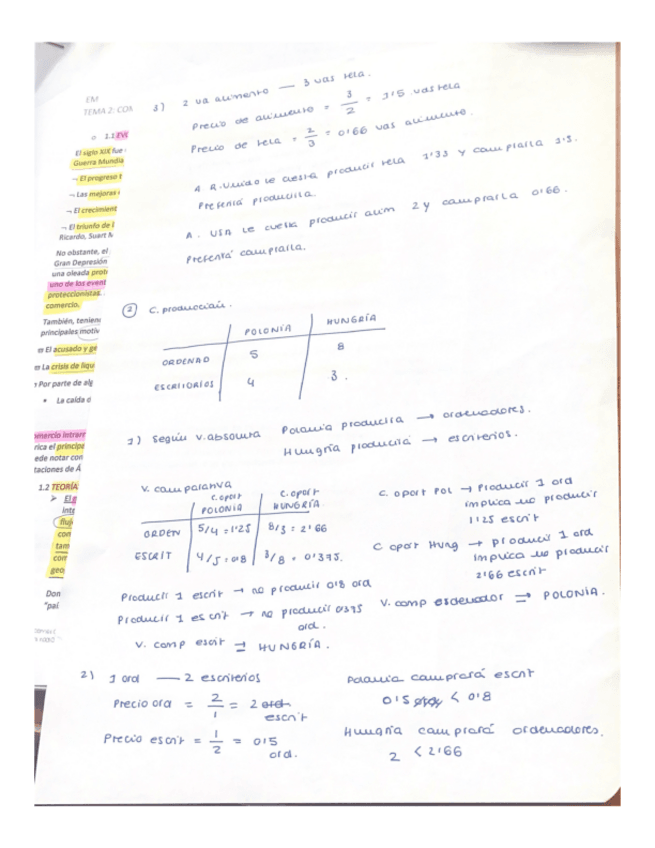 EM
TEMA 2: COM
o 1.1 EVO
El siglo XIX fue
Guerra Mundia
¬ El progreso t
¬ Las mejoras
¬ El crecimient
¬ El triunfo de l
Ricardo, Suart M
No obstante, el
Gran Depresión
una oleada prot
uno de los event
proteccionistas.
comercio.
También, tenien
principales motiv
El acusado y ge
La crisis de liqui
Por parte de alg
• La caída d
omercio intrarr
rica el principe
ede notar con
taciones de Á
1.2 TEORÍA
➢ El
inte
fluj
con
tam
com
geo
Don
"paí
3) 2 ua alimento — 3 uas tela.
Precio de alimento = 3/2 = 1'5 uas tela
Precio de tela = 2/3 = 0'66 uas alimento.
A R.Unido le cuesta producir tela 1'33 y comprarla 1'5.
Preferirá producirla.
A. USA le cuesta producir alim 2 y comprarla 0'66.
Preferirá comprarla.
② C. producción.
POLONIA HUNGRÍA
ORDENAD 5 8
ESCRITORIOS 4 3.
1) Según v. absoluta Polonia producirá → ordenadores.
Hungría producirá → escritorios.
V. comparativa
C. oport POLONIA C. oport HUNGRÍA.
ORDEN 5/4 = 1'25 8/3 = 2'66
ESCRIT 4/5 = 0'8 3/8 = 0'375.
C. oport POL → Producir 1 ord
implica no producir
1'25 escrit
C oport Hung → producir 1 ord
implica no producir
2'66 escrit
Producir 1 escrit → no producir 0'8 ord
Producir 1 escrit → no producir 0'375
ord.
V. comp ordenador ⇒ POLONIA.
V. comp escrit ⇒ HUNGRÍA.
2) 1 ord — 2 escritorios
Precio ord = 2/1 = 2 ord escrit
Precio escrit = 1/2 = 0'5 ord.
Polonia comprará escrit
0'5 < 0'8
Hungría comprará ordenadores.
2 < 2'66